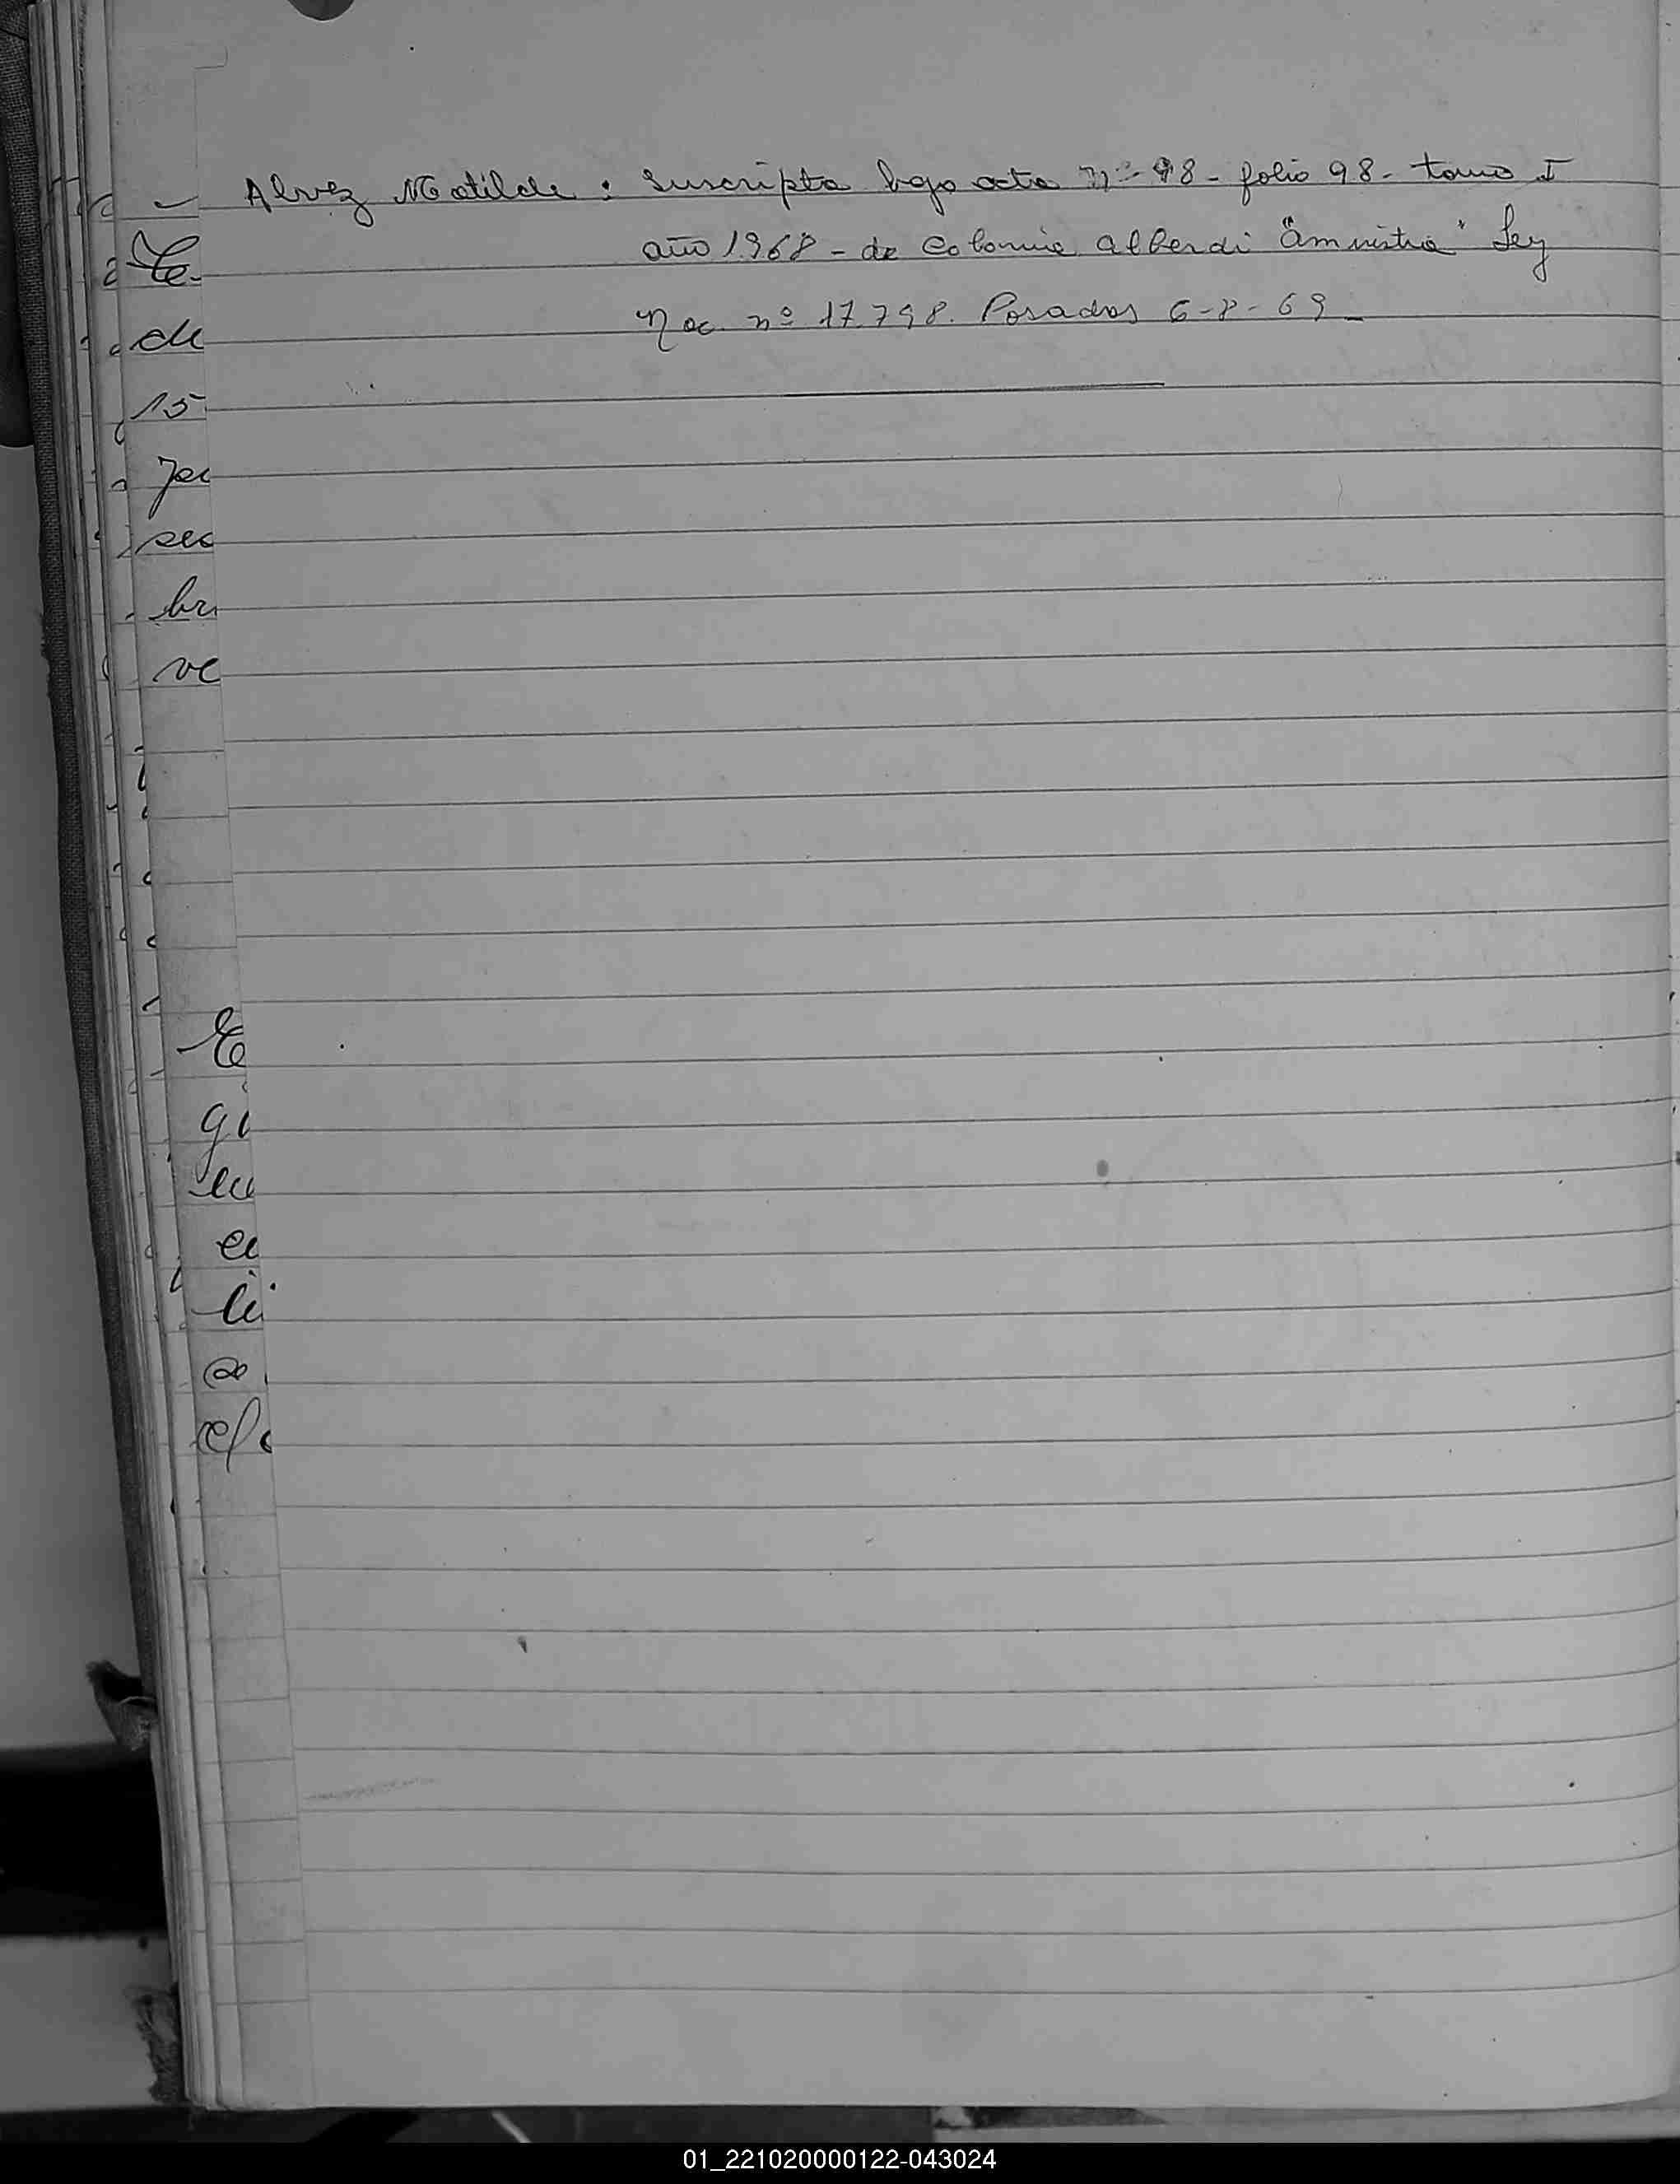 Alvez Matilde : Inscripta bajo acta nº 98 - folio 98 - tomo I
año 1968 - de Colonia Alberdi "Amnistia" Ley
Nac. nº 17.798. Posadas 6-8-69 -
Te.
de
15
ve
E
gi
en
li
a
01_221020000122-043024